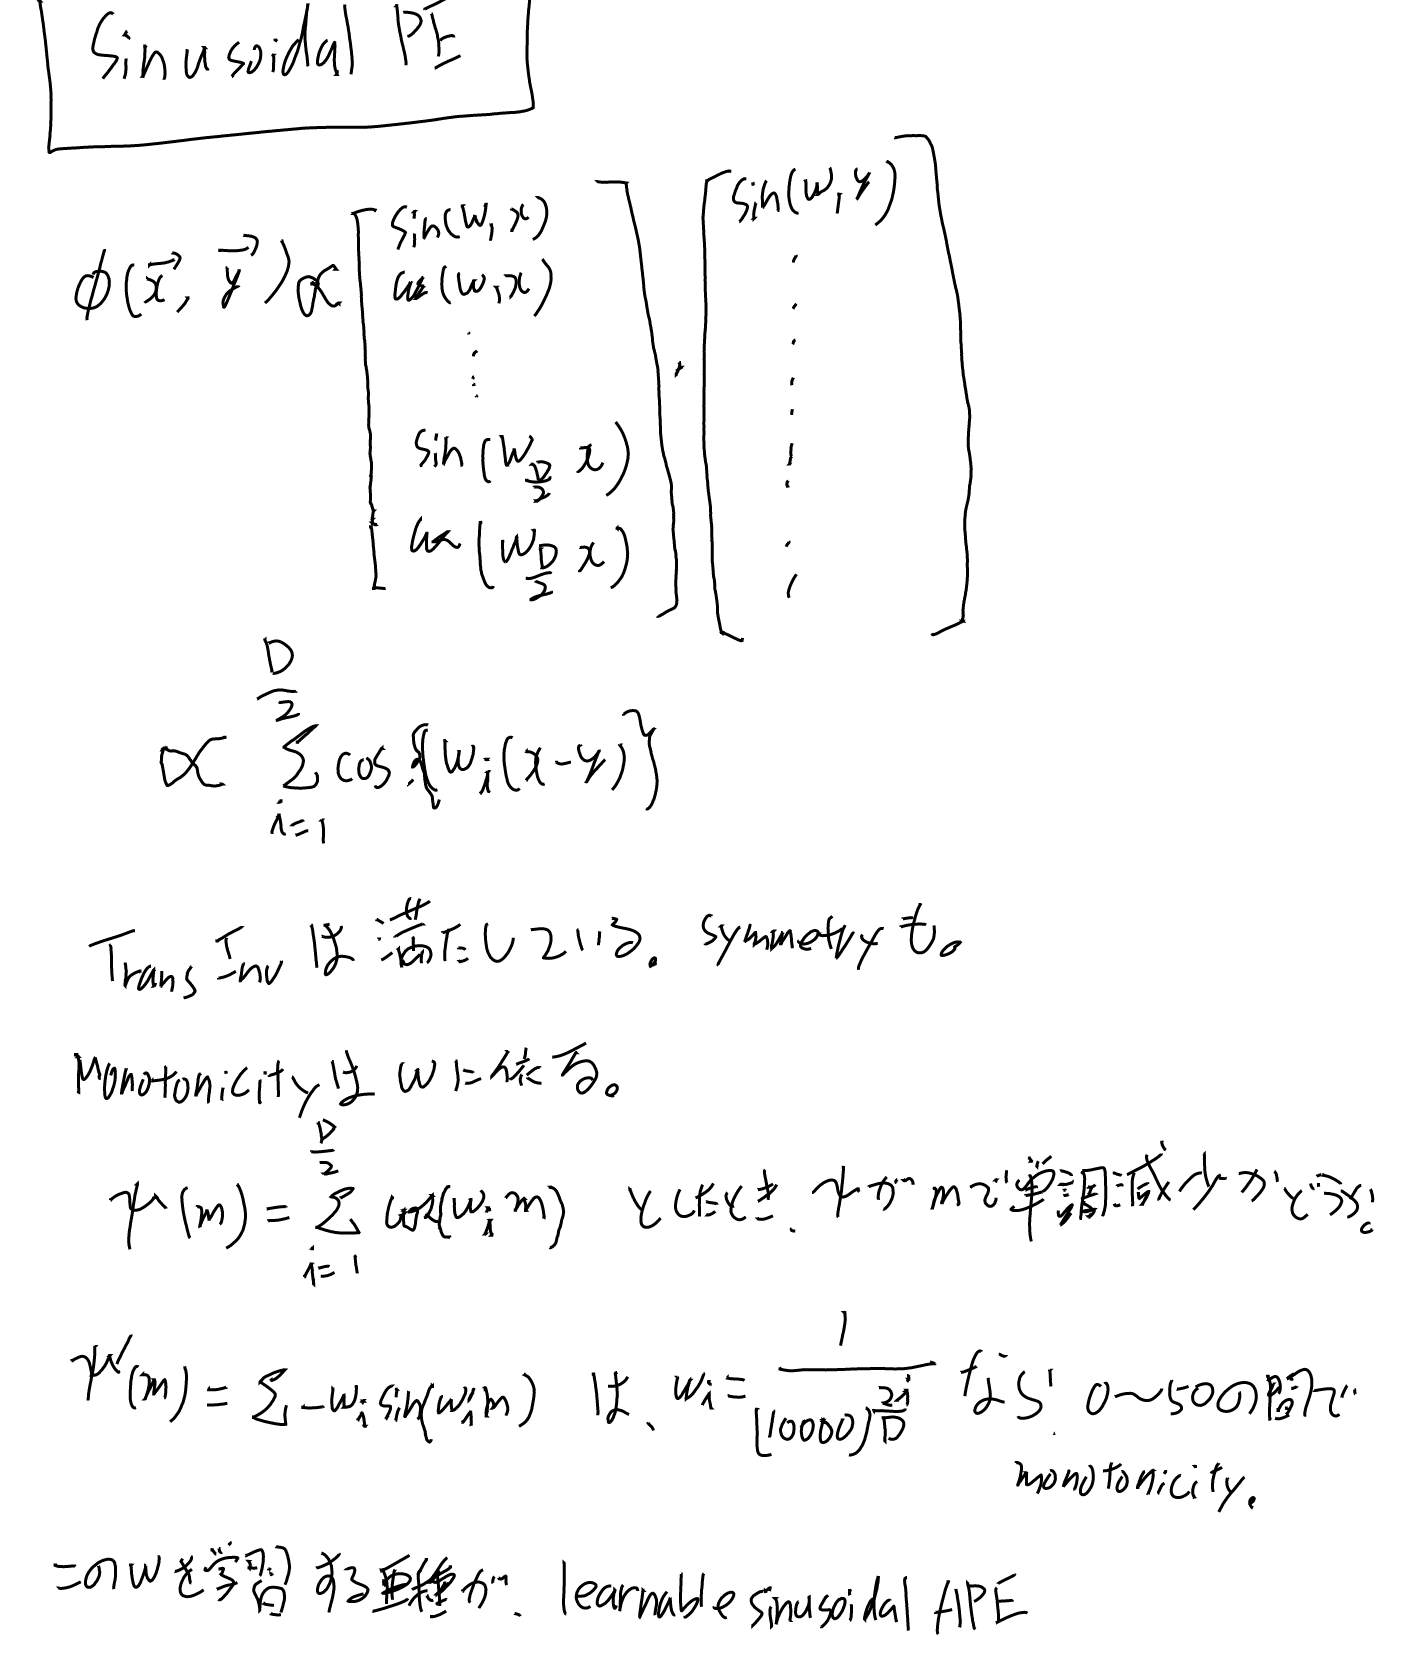 Sinusoidal PE
φ(x⃗, y⃗) ∝ [sin(w₁x) cos(w₁x) ⋮ sin(w_{D/2} x) cos(w_{D/2} x)] · [sin(w₁y) ⋮]
∝ Σ_{i=1}^{D/2} cos{w_i(x-y)}
Trans Inv は満たしている。symmetryも。
Monotonicityはwに依る。
ψ(m) = Σ_{i=1}^{D/2} cos(w_i m) としたとき、ψがmで単調減少かどうか。
ψ'(m) = Σ -w_i sin(w_i m) は、w_i = 1/(10000)^{2i/D} なら 0〜50の間で
monotonicity.
このwを学習する亜種が、learnable sinusoidal APE